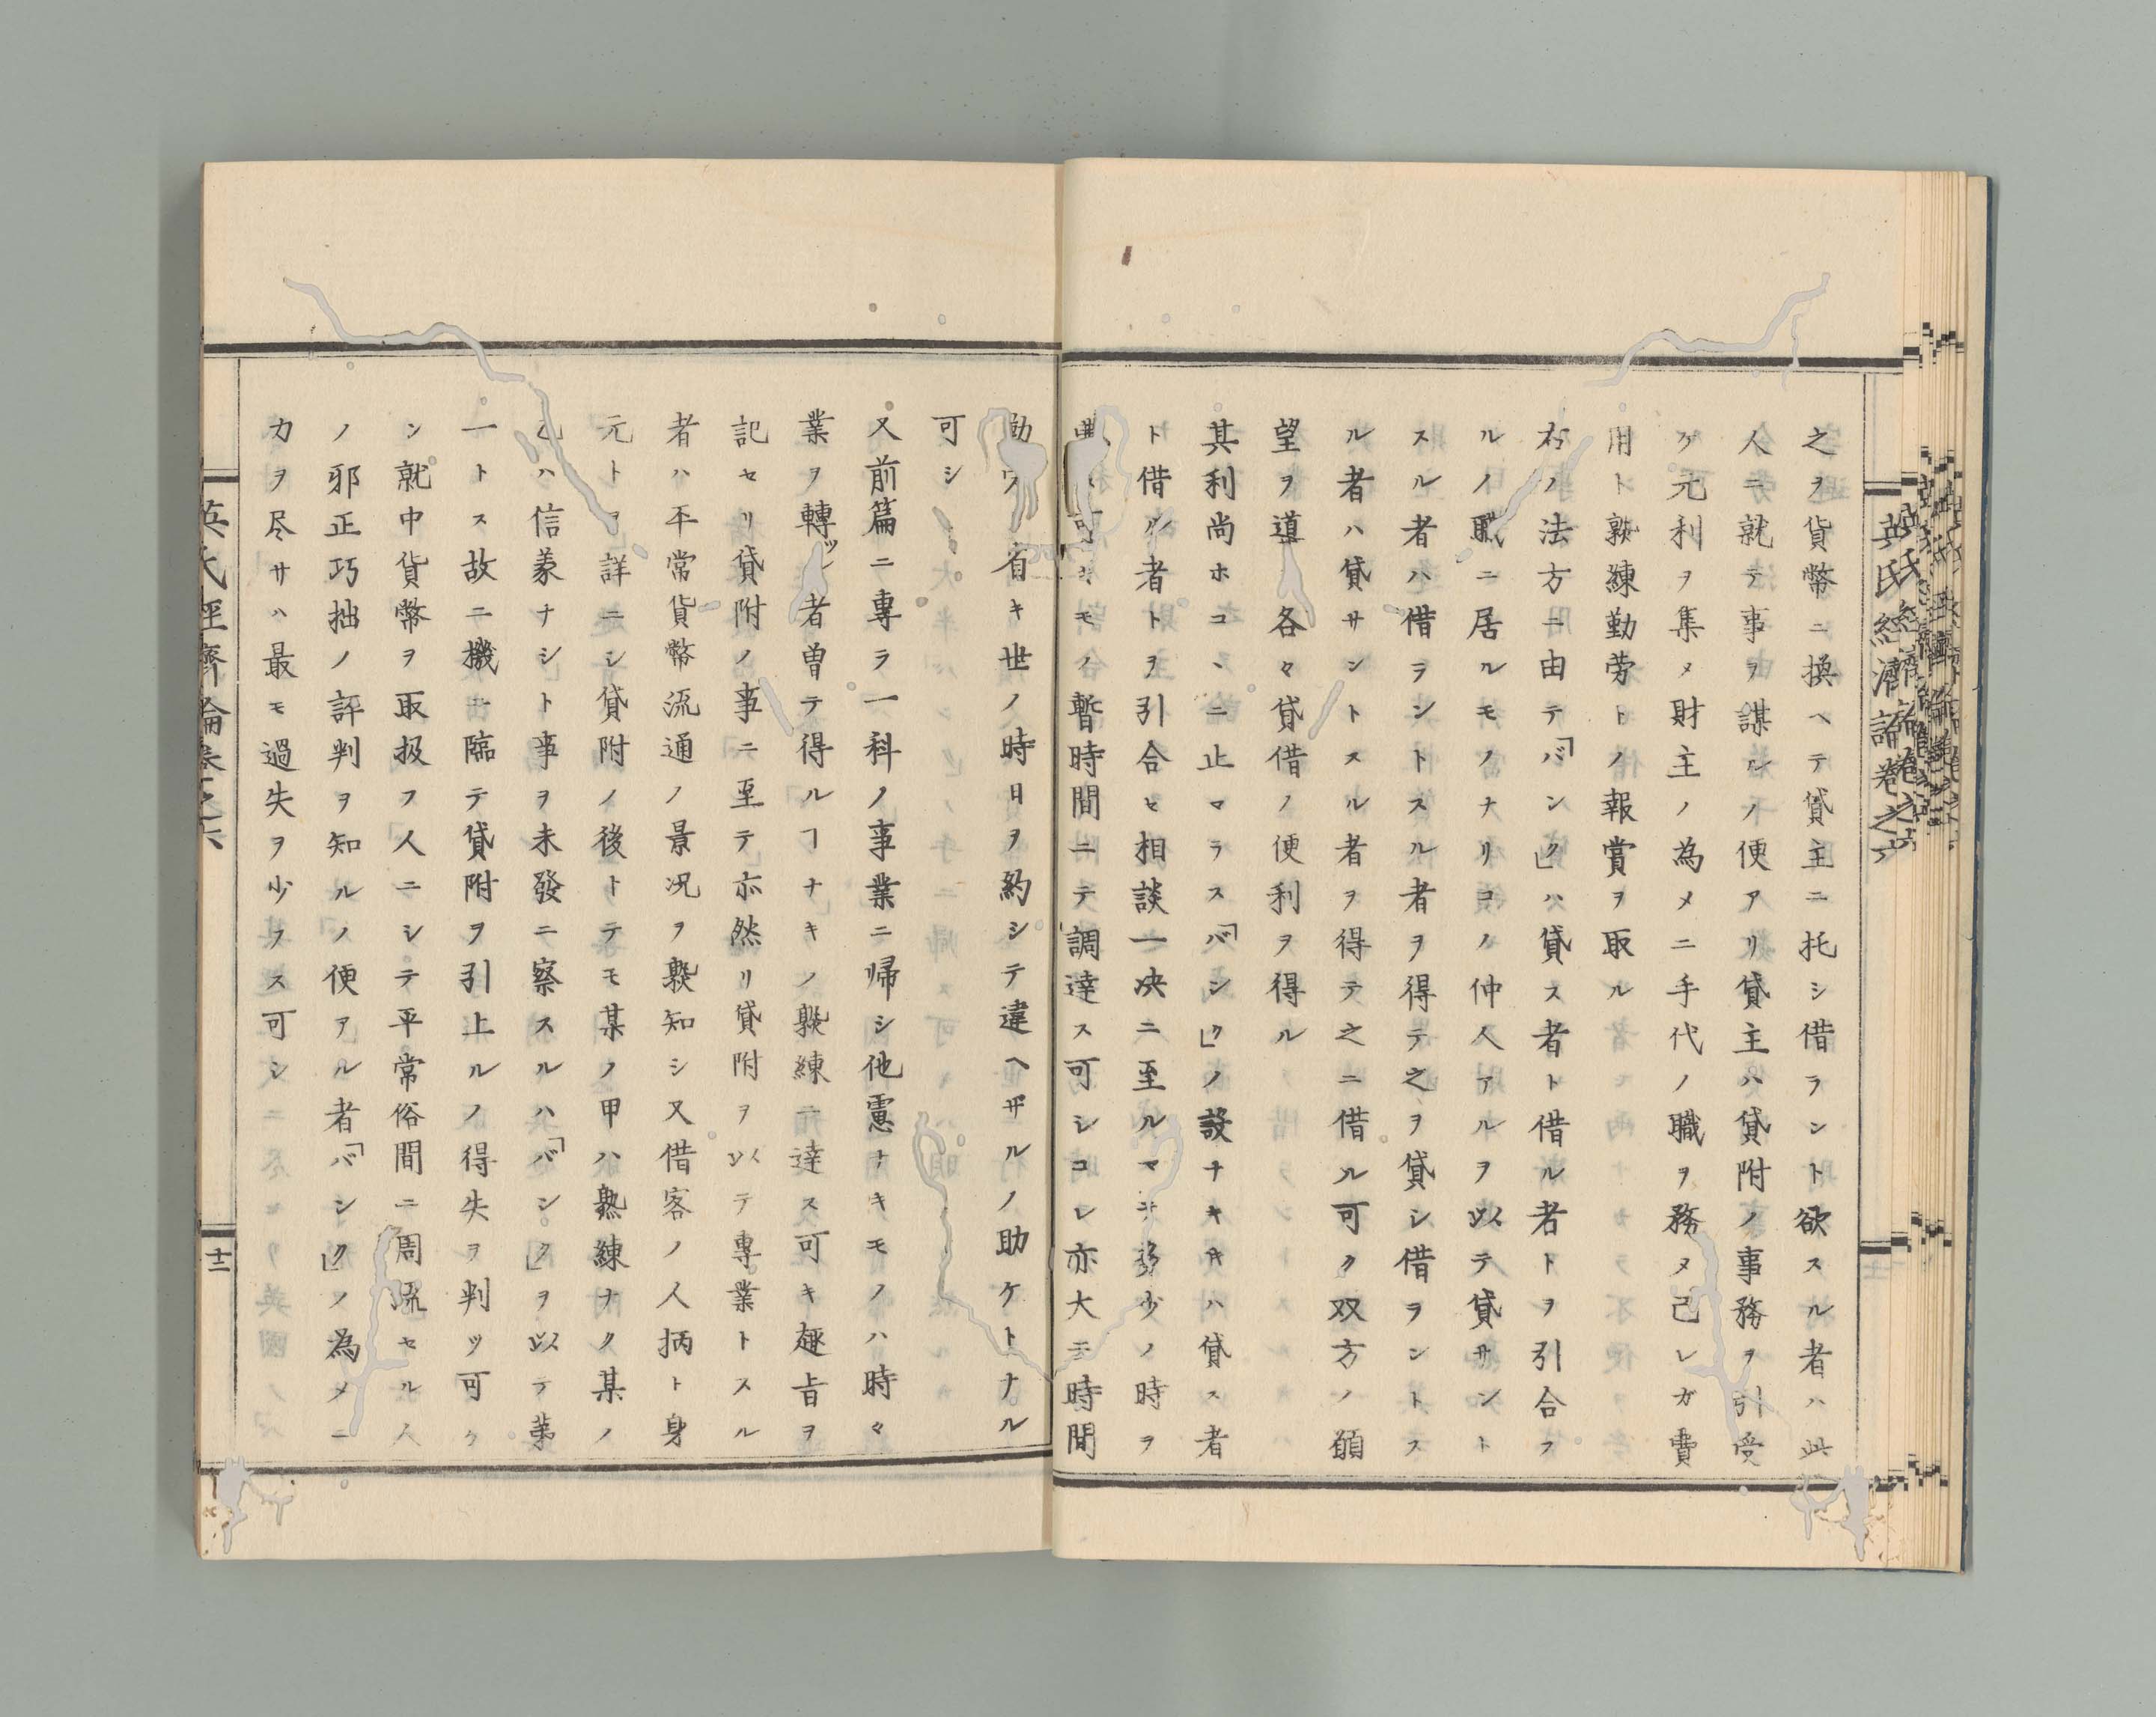 之ヲ貨幣ニ換ヘテ貸主ニ托シ借ラント欲スル者ハ此
人ニ就テ事ヲ謀ルノ便アリ貸主ハ貸附ノ事務ヲ引受
ケ元利ヲ集メ財主ノ為メニ手代ノ職ヲ務メ己レガ費
用ト熟練勤労トノ報賞ヲ取ル
右ノ法方ニ由テ「バンク」ハ貸ス者ト借ル者トヲ引合ス
ルノ職ニ居ルモノナリコノ仲人アルヲ以テ貸サント
スル者ハ借ラントスル者ヲ得テ之ヲ貸シ借ラントス
ル者ハ貸サントスル者ヲ得テ之ニ借ル可ク双方ノ願
望ヲ道 各々貸借ノ便利ヲ得ル
其利尚ホコヽニ止マラス「バンク」ノ設ナキキハ貸ス者
ト借ル者トヲ引合セ相談一决ニ至ルマデ多少ノ時ヲ
可キモノ暫時間ニテ調達ス可シコレ亦大ニ時間
省キ世ノ時日ヲ約シテ違ヘザルノ助ケトナル
可シ
又前篇ニ專ラ一科ノ事業ニ帰シ他慮ナキモノハ時々
業ヲ轉ツ 者曽テ得ルヿナキノ熟練ニ達ス可キ趣旨ヲ
記セリ貸附ノ事ニ至テ亦然リ貸附ヲ以テ專業トスル
者ハ平常貨幣流通ノ景况ヲ熟知シ又借客ノ人柄ト身
元トヲ詳ニシ貸附ノ後トテモ某ノ甲ハ熟練ナク某ノ
乙ハ信義ナシト事ヲ未發ニ察スルハ「バンク」ヲ以テ第
一トス故ニ機ニ臨テ貸附ヲ引上ルノ得失ヲ判ツ可ク
ン就中貨幣ヲ取扱フ人ニシテ平常俗間ニ周流セル人
ノ邪正巧拙ノ評判ヲ知ルノ便アル者「バンク」ノ為メニ
力ヲ尽サハ最モ過失ヲ少フス可シ
英氏經濟論卷之六
十二